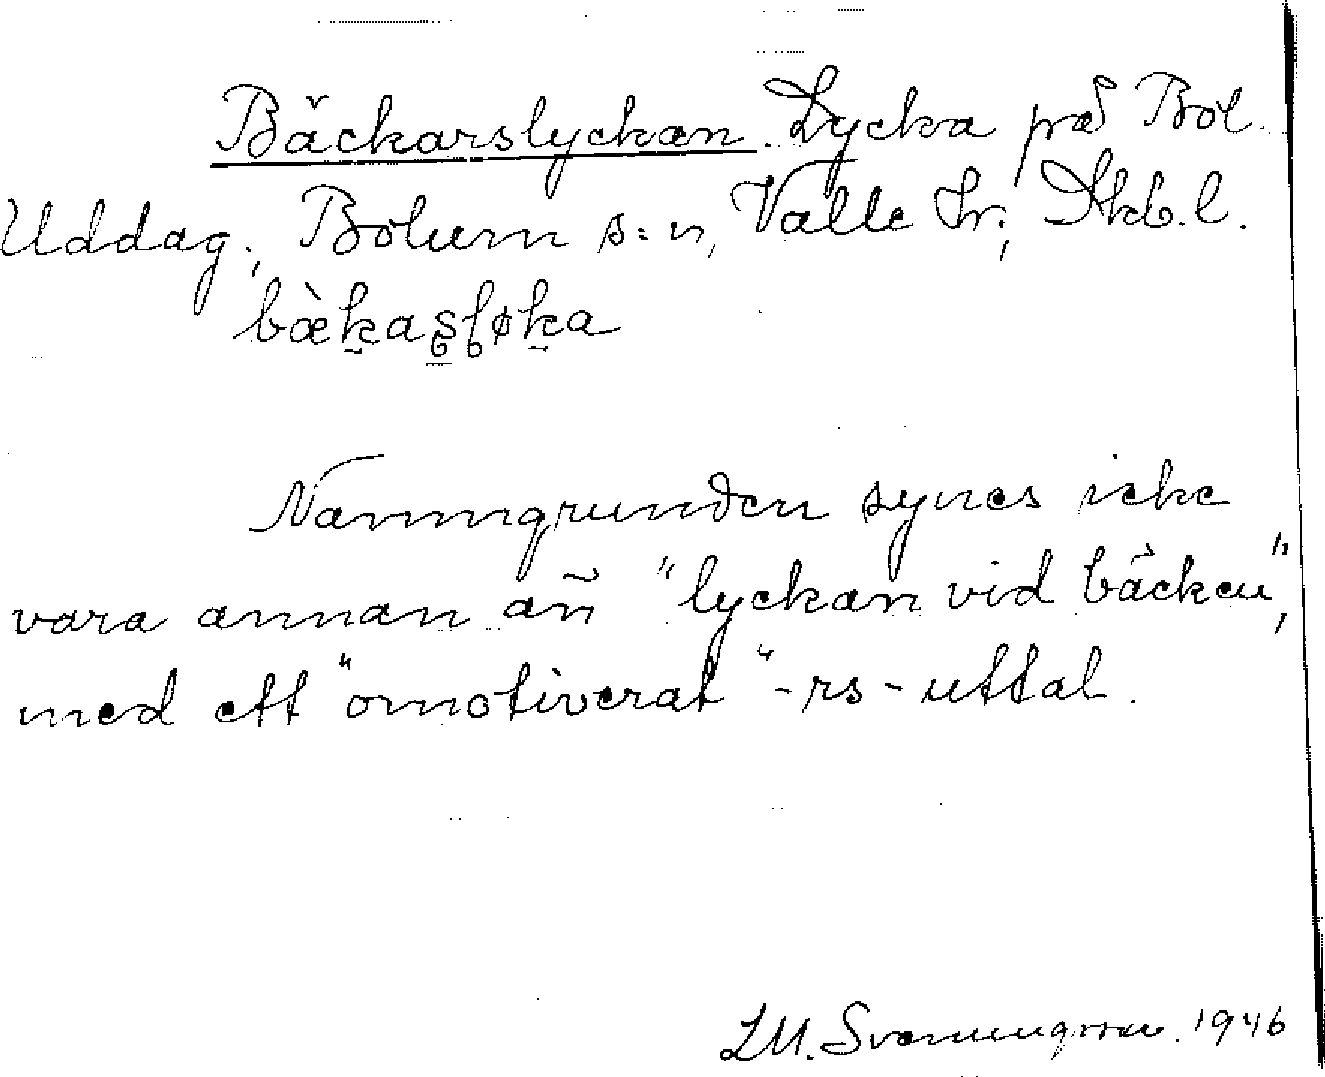 Bäckarslyckan. Lycka på Bol.
Uddag; Bolum s:n, Valle hr; Skb.l.
bæ̀kaʂɭøka
Namngrunden synes icke
vara annan añ "lyckan vid bäcken",
med ett "omotiverat" -rs-uttal.
L.M. Svanungsson. 1946